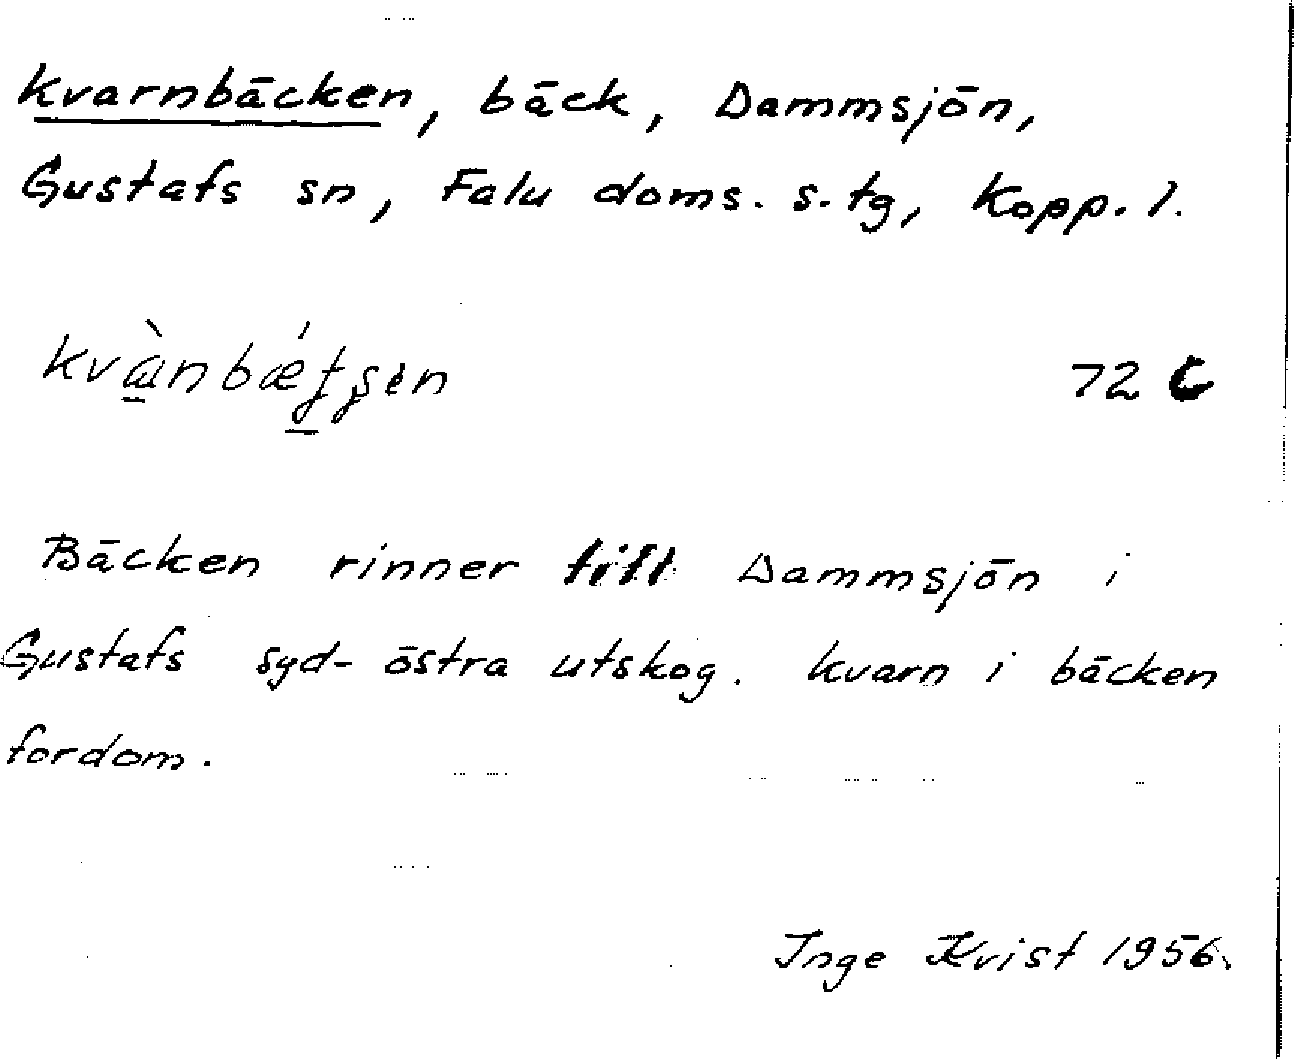 Kvarnbäcken, bäck, Dammsjön,
Gustafs sn, Falu doms. s. tg, Kopp. l.
72 C
Bäcken rinner till Dammsjön i
Gustafs syd-östra utskog. Kvarn i bäcken
fordom.
Inge Krist 1956.